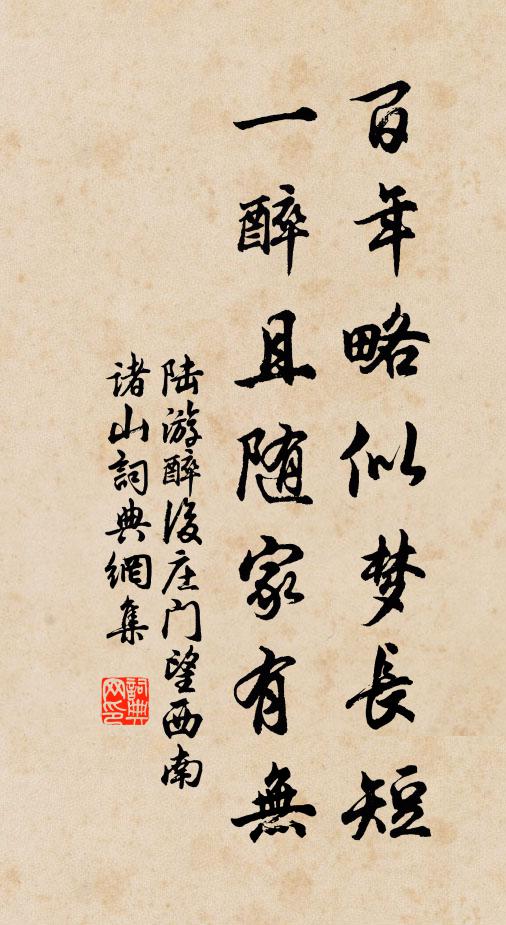 百年略似梦長短
一醉且随家有無
陆游醉後庄门望西南
诸山詞典網集
詞典网印